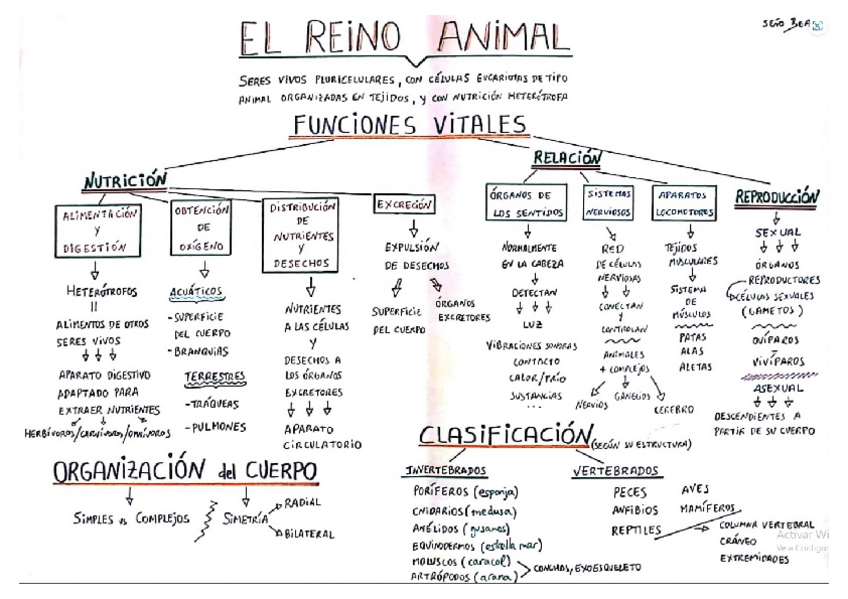 SEÑO BEA
EL REINO ANIMAL
SERES VIVOS PLURICELULARES, CON CÉLULAS EUCARIOTAS DE TIPO
ANIMAL ORGANIZADAS EN TEJIDOS, Y CON NUTRICIÓN HETERÓTROFA
FUNCIONES VITALES
NUTRICIÓN
ALIMENTACIÓN
Y
DIGESTIÓN
HETERÓTROFOS
=
ALIMENTOS DE OTROS
SERES VIVOS
APARATO DIGESTIVO
ADAPTADO PARA
EXTRAER NUTRIENTES
HERBÍVOROS/CARNÍVOROS/OMNÍVOROS
OBTENCIÓN
DE
OXÍGENO
ACUÁTICOS
-SUPERFICIE
DEL CUERPO
-BRANQUIAS
TERRESTRES
-TRÁQUEAS
-PULMONES
DISTRIBUCIÓN
DE
NUTRIENTES
Y
DESECHOS
NUTRIENTES
A LAS CÉLULAS
Y
DESECHOS A
LOS ÓRGANOS
EXCRETORES
APARATO
CIRCULATORIO
EXCRECIÓN
EXPULSIÓN
DE DESECHOS
SUPERFICIE
DEL CUERPO
ÓRGANOS
EXCRETORES
RELACIÓN
ÓRGANOS DE
LOS SENTIDOS
NORMALMENTE
EN LA CABEZA
DETECTAN
LUZ
VIBRACIONES SONORAS
CONTACTO
CALOR/FRÍO
SUSTANCIAS
...
SISTEMAS
NERVIOSOS
RED
DE CÉLULAS
NERVIOSAS
CONECTAN
Y
CONTROLAN
ANIMALES
+ COMPLEJOS
NERVIOS
GANGLIOS
CEREBRO
APARATOS
LOCOMOTORES
TEJIDOS
MUSCULARES
SISTEMA
DE
MÚSCULOS
PATAS
ALAS
ALETAS
REPRODUCCIÓN
SEXUAL
ÓRGANOS
REPRODUCTORES
CÉLULAS SEXUALES
(GAMETOS)
OVÍPAROS
VIVÍPAROS
ASEXUAL
DESCENDIENTES A
PARTIR DE SU CUERPO
ORGANIZACIÓN del CUERPO
SIMPLES vs COMPLEJOS
SIMETRÍA
RADIAL
BILATERAL
CLASIFICACIÓN (SEGÚN SU ESTRUCTURA)
INVERTEBRADOS
PORÍFEROS (esponja)
CNIDARIOS (medusa)
ANÉLIDOS (gusanos)
EQUINODERMOS (estrella mar)
MOLUSCOS (caracol)
ARTRÓPODOS (araña)
CONCHAS, EXOESQUELETO
VERTEBRADOS
PECES
ANFIBIOS
REPTILES
AVES
MAMÍFEROS
COLUMNA VERTEBRAL
CRÁNEO
EXTREMIDADES
Activar Wi
Ve a Configur